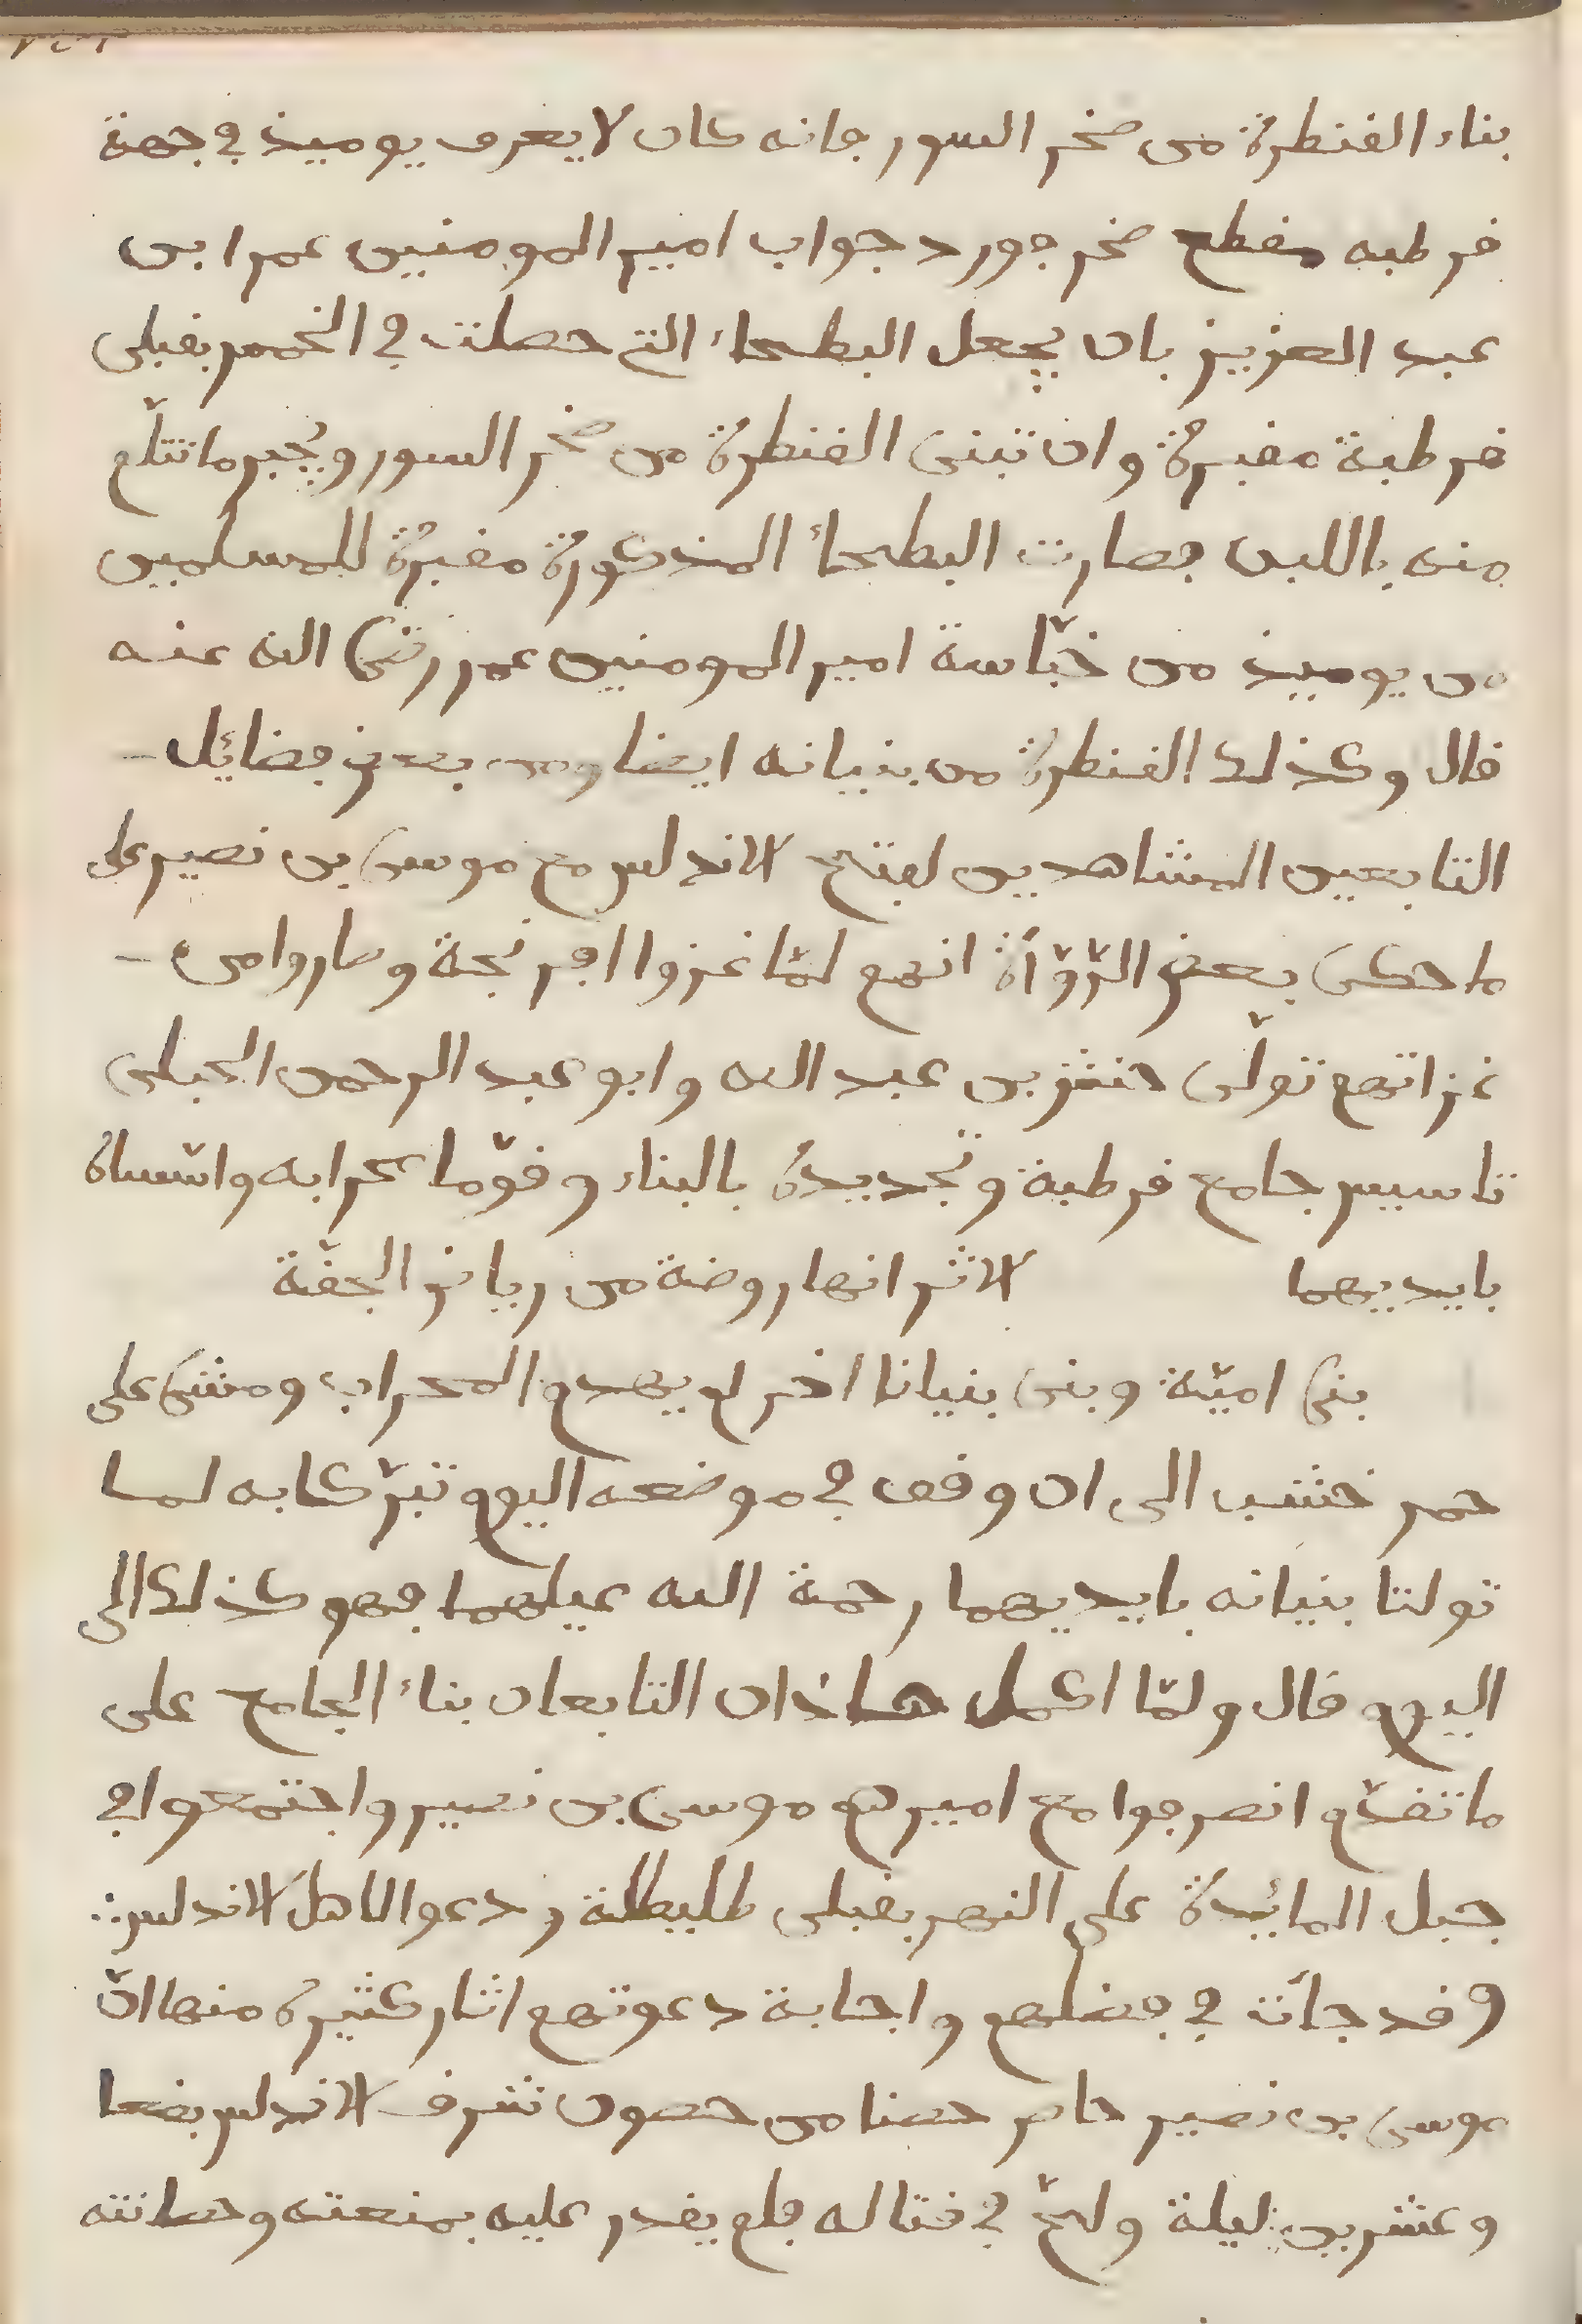 بناء القنطرة من صخر السور فانه كان لا يعرف يوميذ في جهة
قرطبه مقطع صخر فورد جواب امير المومنين عمر ابن
عبد العزيز بان يجعل البطحاء التي حصلت في الخمس بقبلى
قرطبة مقبرة وان تبنى القنطرة من صخر السور ويجبر ما تثلّم
منه باللبن فصارت البطحاء المذكورة مقبرة للمسلمين
من يوميذ من خبّاسة امير المومنين عمر رضي الله عنه
قال وكذلك القنطرة من بنيانه ايضا ومن بعض فضائل
التابعين المشاهدين لفتح الاندلس مع موسى بن نصير على
ما حكى بعض الرّوّاة انهم لمّا غزوا افرنجة وصاروا من
غزاتهم تولّى حنش بن عبد الله وابو عبد الرحمن الحبلى
تاسيس جامع قرطبة وتجديده بالبناء وقوّما محرابه واسّساه
بايديهما الاثر انها روضة من رياض الجنّة
بني اميّة وبنى بنيانا اخر لم يهدم المحراب ومشى على
حمر خشب الى ان وقف في موضعه اليوم تبرّكا به لما
تولتا بنيانه بايديهما رحمة الله عيلهما فهو كذلك الى
اليوم قال ولمّا اكمل هاذان التابعان بناء الجامع على
ما تقدّم انصرفوا مع اميرهم موسى بن نصير واجتمعوا في
جبل المائيدة على النهر بقبلى طليطلة ودعوا لاهل الاندلس
وقد جأت في فضلهم واجابة دعوتهم اثار كثيرة منها انّ
موسى بن نصير حاصر حصنا من حصون شرف الاندلس بضعا
وعشرين ليلة ولحّ في قتاله فلم يقدر عليه بمنعته وحصانته